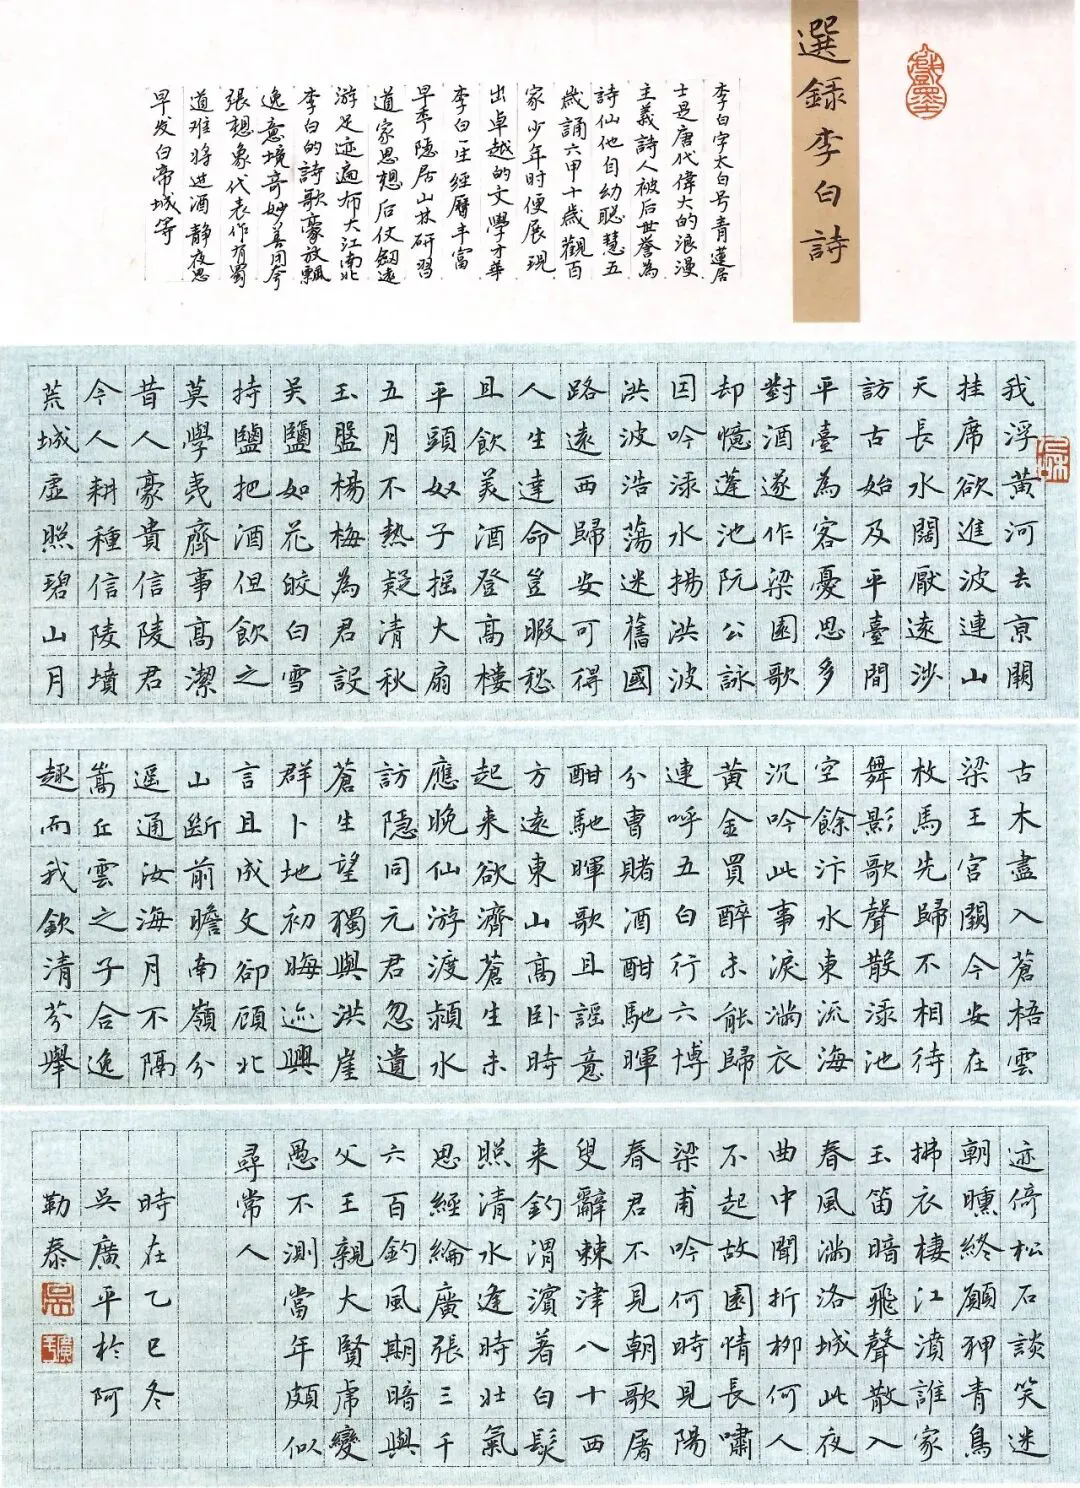 選録李白詩
李白字太白号青蓮居
士是唐代偉大的浪漫
主義詩人被后世誉為
詩仙他自幼聪慧五
歲誦六甲十歲觀百
家少年时便展現
出卓越的文學才華
李白一生經歷丰富
早年隱居山林研習
道家思想后仗劍遠
游足迹遍布大江南北
李白的詩歌豪放飄
逸意境奇妙善用夸
張想象代表作有蜀
道难将进酒静夜思
早发白帝城等
我浮黄河去京闕
挂席欲進波連山
天長水闊厭遠涉
訪古始及平臺間
平臺為客憂思多
對酒遂作梁園歌
却憶蓬池阮公詠
因吟渌水揚洪波
洪波浩蕩迷舊國
路遠西歸安可得
人生達命豈暇愁
且飲美酒登高樓
平頭奴子摇大扇
五月不熱疑清秋
玉盤楊梅為君設
吴鹽如花皎白雪
持鹽把酒但飲之
莫學夷齊事高潔
昔人豪貴信陵君
今人耕種信陵墳
荒城虚照碧山月
古木盡入蒼梧雲
梁王宫闕今安在
枚馬先歸不相待
舞影歌聲散渌池
空餘汴水東流海
沉吟此事淚滿衣
黄金買醉未能歸
連呼五白行六博
分曹賭酒酣馳暉
酣馳暉歌且謡意
方遠東山高卧時
起来欲濟蒼生未
應晚仙游渡潁水
訪隱同元君忽遺
蒼生望獨與洪崖
群卜地初晦迹興
言且成文卻顧北
山斷前瞻南嶺分
遥通汝海月不隔
嵩丘雲之子合逸
趣而我欽清芬舉
迹倚松石談笑迷
朝曛終願狎青鳥
拂衣棲江濆誰家
玉笛暗飛聲散入
春風滿洛城此夜
曲中聞折柳何人
不起故園情長嘯
梁甫吟何時見陽
春君不見朝歌屠
叟辭棘津八十西
来釣渭濱着白髮
照清水逢時壯氣
思經綸廣張三千
六百釣風期暗與
父王親大賢虎變
愚不測當年頗似
尋常人
時在乙巳冬
吳廣平於阿
勒泰